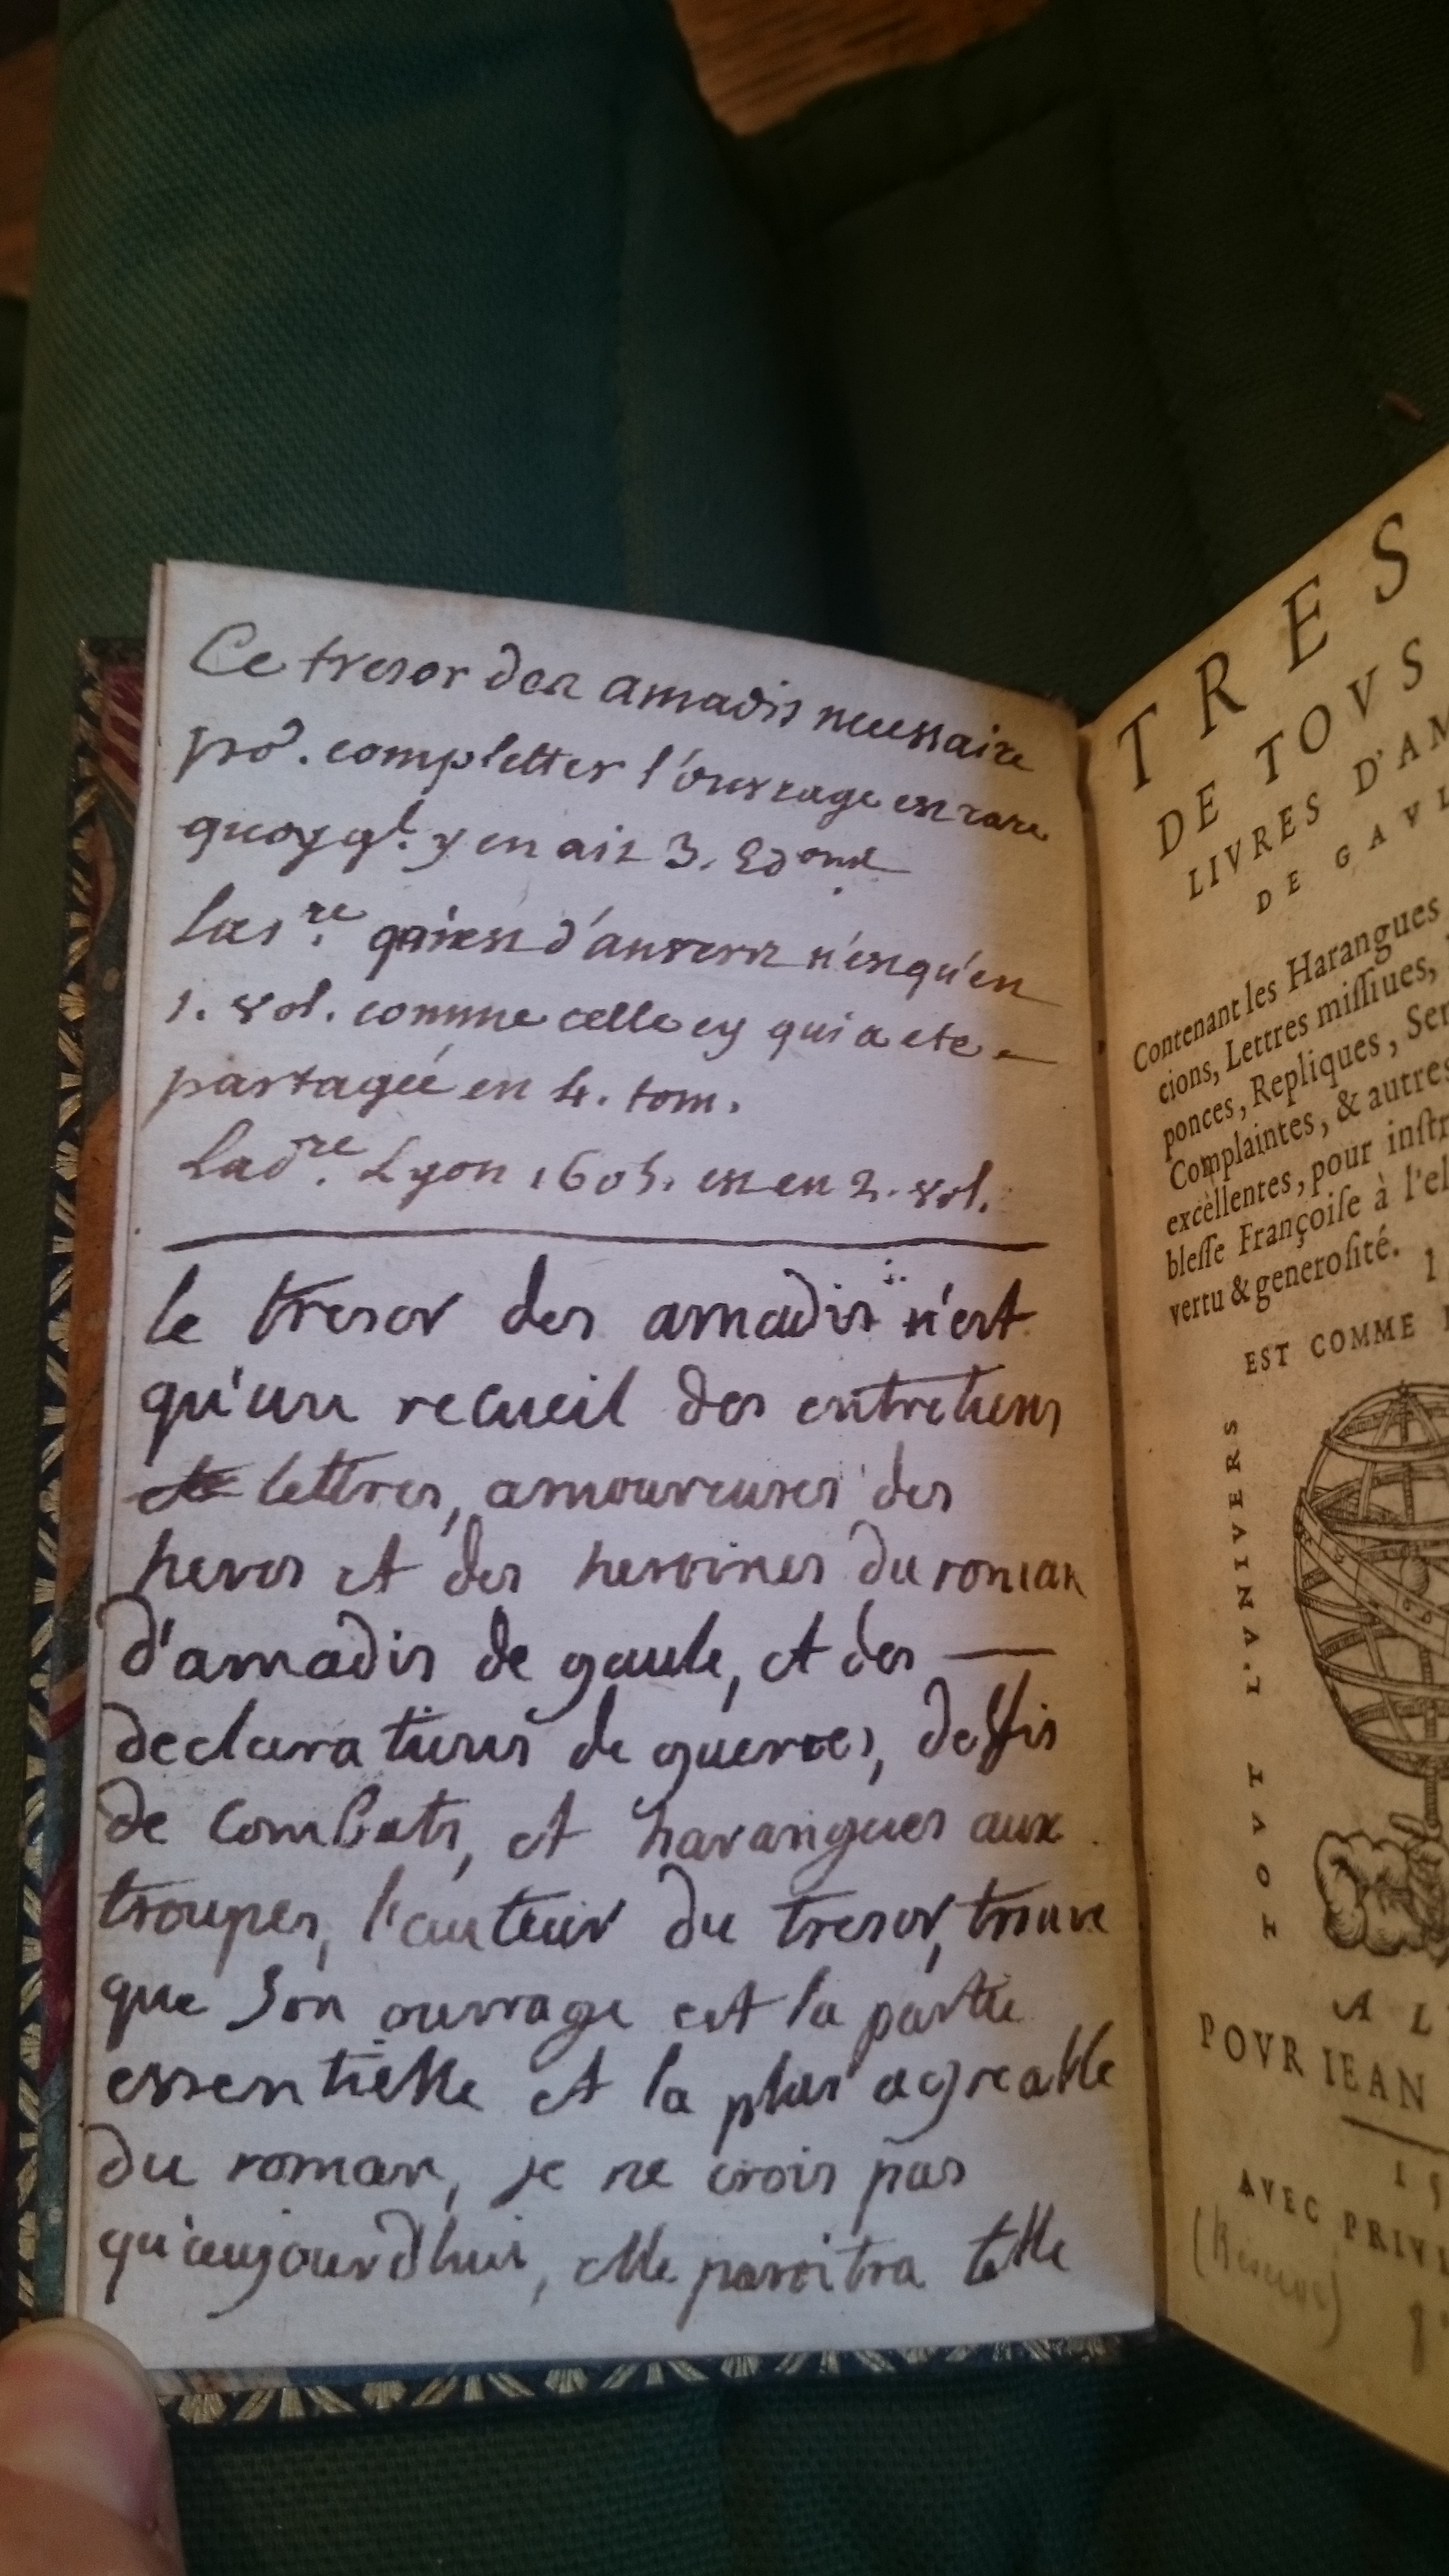 Ce tresor des amadis necessaire
por. completter l'ouvrage est rare
quoyql. y en ait 3. Edons
La 1re. qui est d'anvers n'est qu'en
1. vol. comme celle cy qui a ete
partagée en 4. tom.
La dre. Lyon 1605. est en 2. vol.
le tresor des amadis n'est
qu'un recueil des entretiens
lettres, amoureuses des
heros et des heroines du roman
d'amadis de gaule, et des
declarations de guerres, deffis
de combats, et harangues aux
troupes, l'auteur du tresor, trouve
que son ouvrage est la partie
essentielle et la plus agreable
du roman, je ne crois pas
qu'aujourd'hui, elle paroitra telle
TRES
DE TOVS
LIVRES D'AM
DE GAVL
Contenant les Harangues
cions, Lettres missiues,
ponces, Repliques, Ser
Complaintes, & autres
excellentes, pour instr
blesse Françoise à l'el
vertu & generosité.
EST COMME
TOVT L'VNIVERS
A L
POVR IEAN
15
AVEC PRIVI
(Réserve)